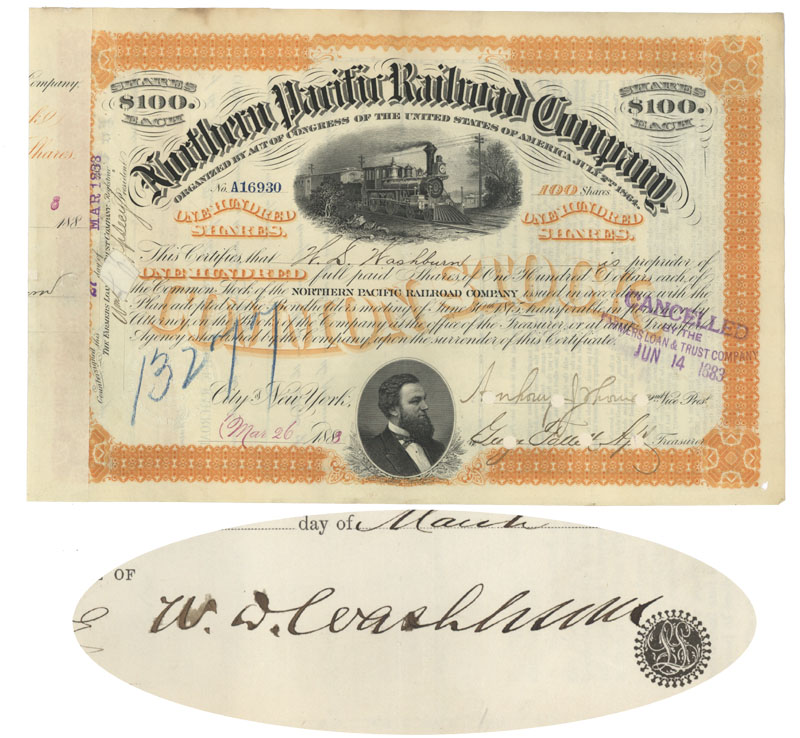 Company.
Shares.
8
188
MAR 1883
SHARES
$100.
EACH
Northern Pacific Railroad Company,
SHARES
$100.
EACH
ORGANIZED BY ACT OF CONGRESS OF THE UNITED STATES OF AMERICA JULY 2ND 1864.
No. A16930
100 Shares
ONE HUNDRED
SHARES.
ONE HUNDRED
SHARES.
This Certifies that W. D. Washburn is proprietor of
ONE HUNDRED full paid Shares of One Hundred Dollars each, of
the Common Stock of the NORTHERN PACIFIC RAILROAD COMPANY issued in accordance with the
Plan adopted at the Bondholders meeting of June Transferable in person or by
Attorney, on the books of the Company at the office of the Treasurer, or at any Transfer
Agency established by the Company upon the surrender of this Certificate.
COMMON STOCK
CANCELLED
BY THE
FARMERS LOAN & TRUST COMPANY
JUN 14 1883
City of New York,
Mar 26 1883
Vice Prest.
Treasurer
Countersigned this day of
THE FARMERS LOAN AND TRUST COMPANY Registrar
President
day of March
OF
W. D. Washburn